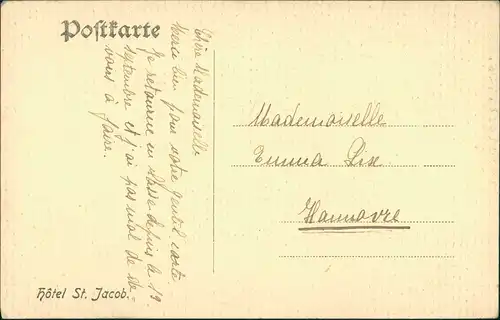 Postkarte
Chère Mademoiselle
Merci bien pour votre gentil carte.
Je retourne en classe depuis le 19
septembre et j'ai pas mal de de-
voirs à faire.
Mademoiselle
Emma Lise
Hannovre
Hôtel St. Jacob.